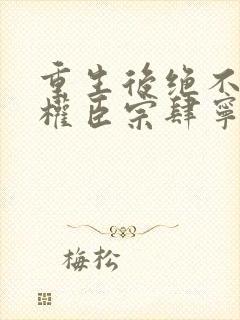 重生後绝不
權臣宗肆寧
梅松